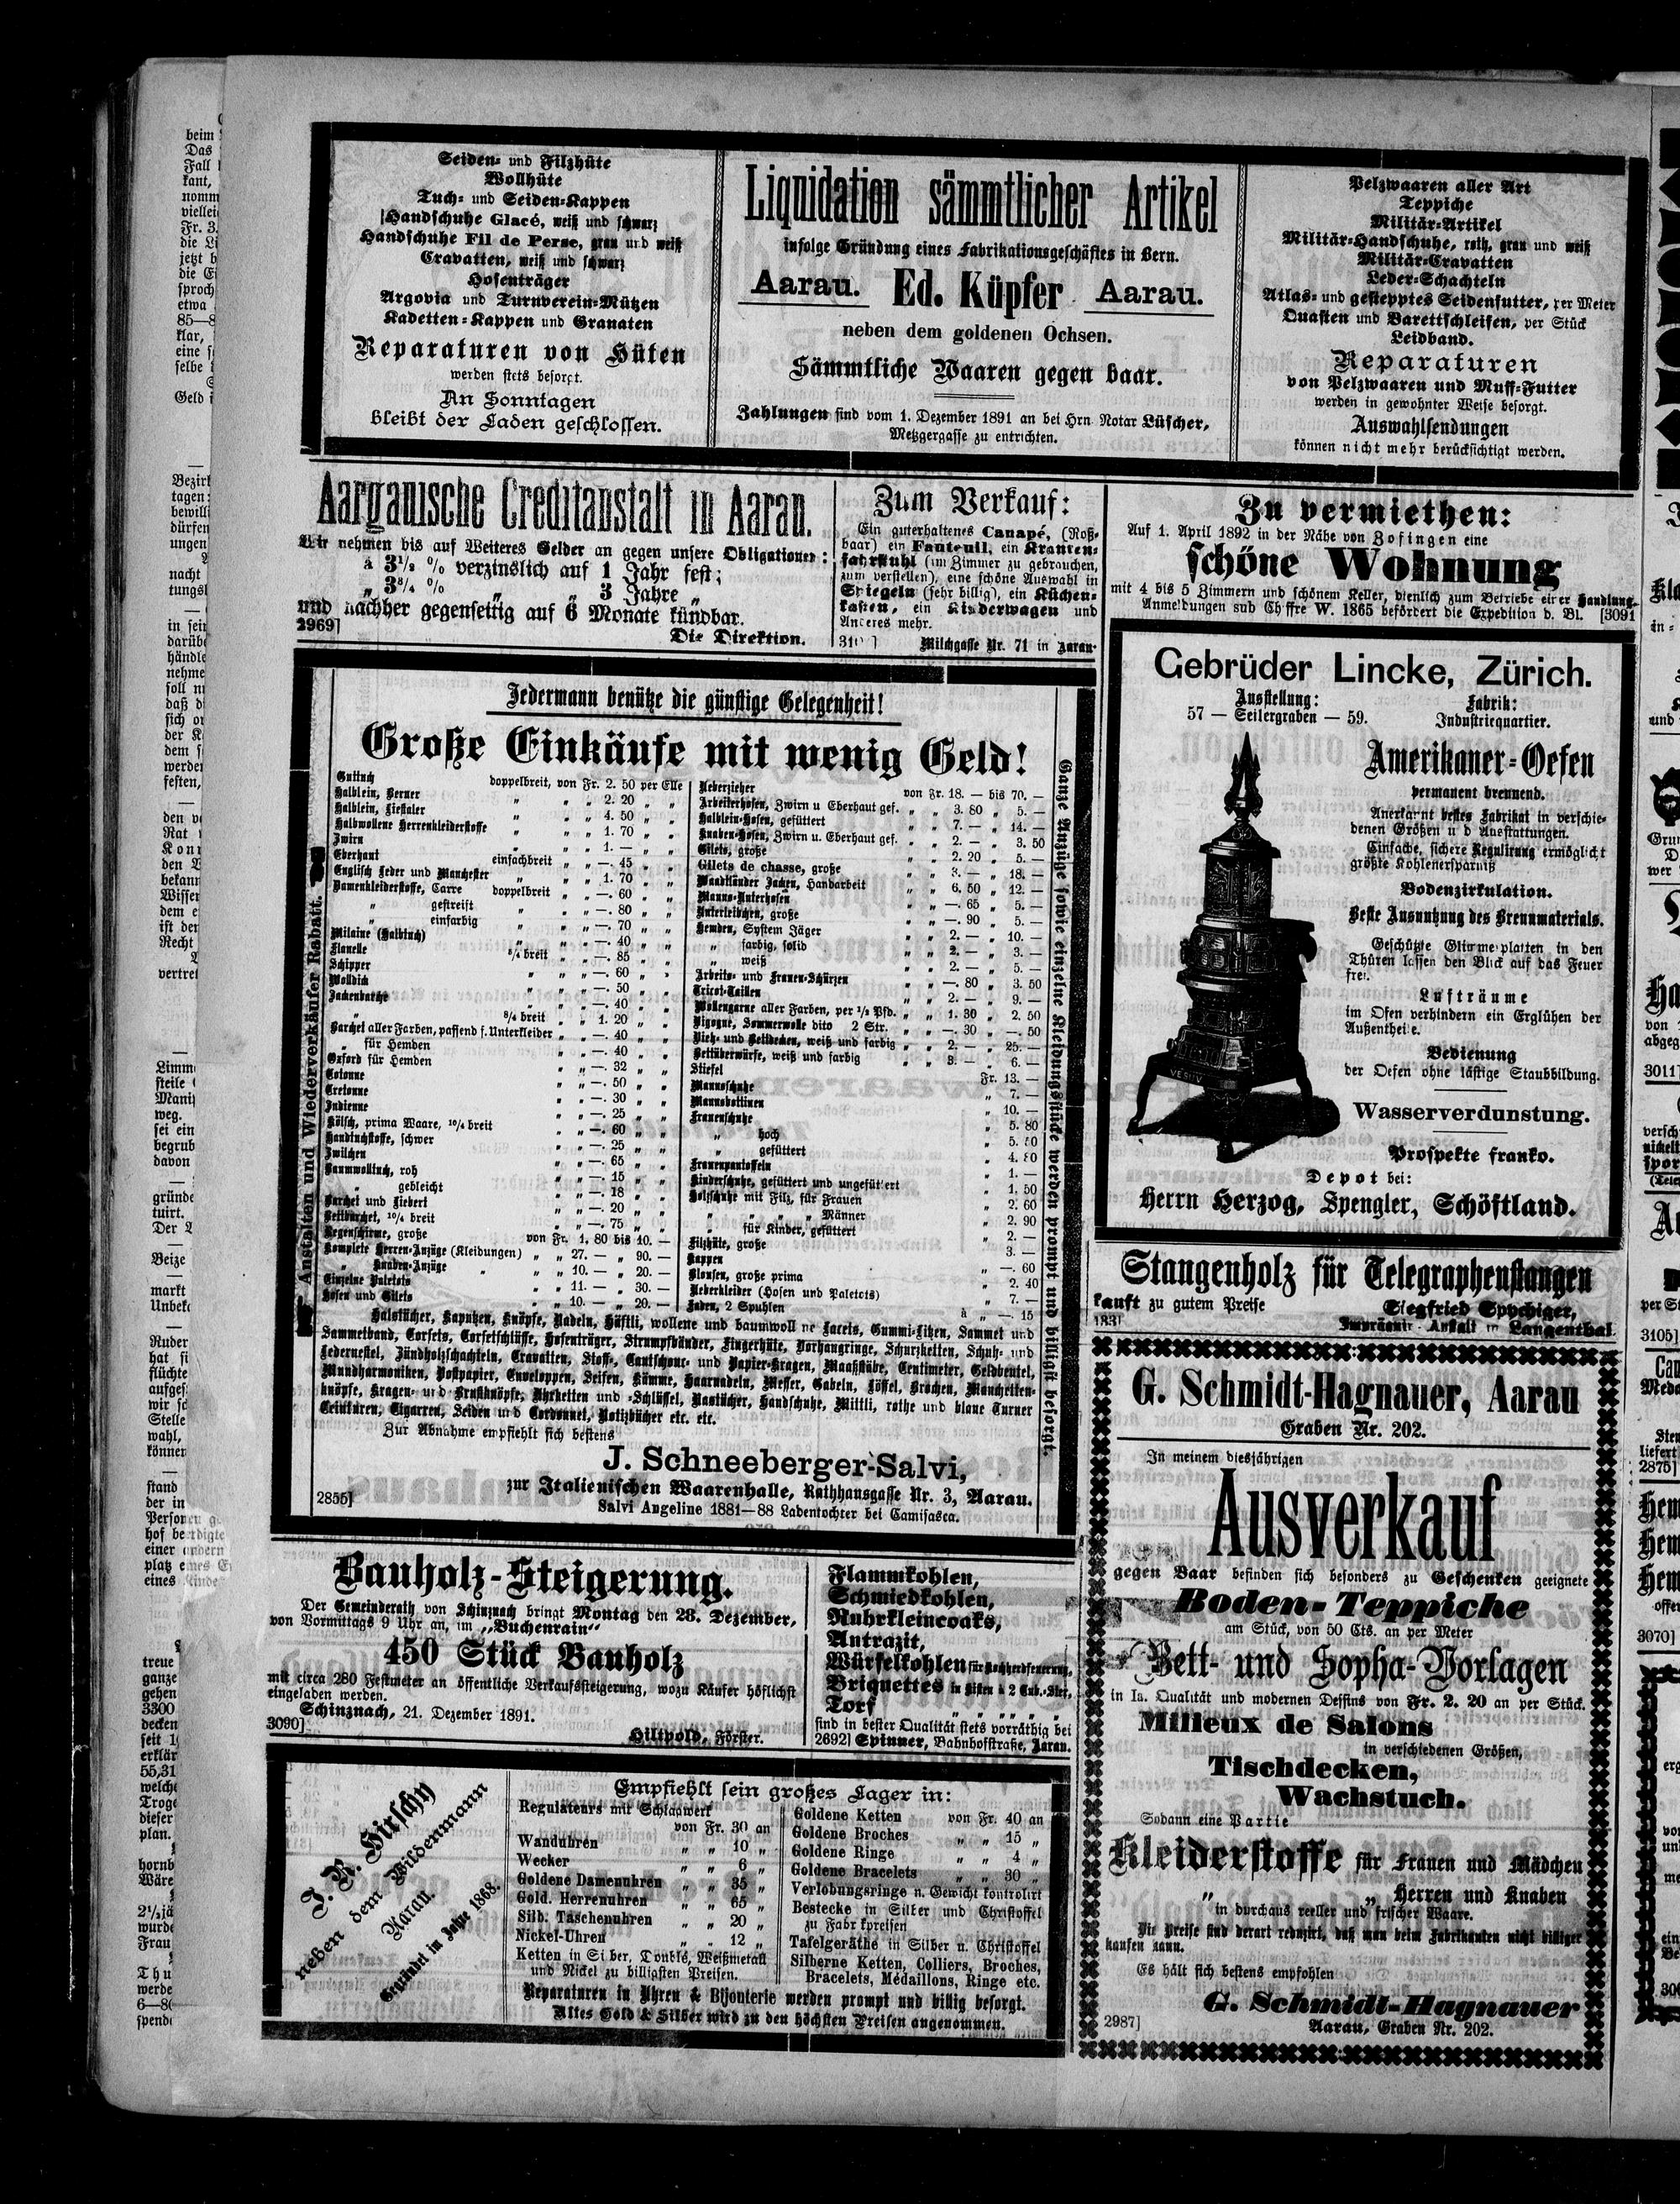 Seiden- und Filzhüte
Wollhüte
Tuch- und Seiden-Kappen
Handschuhe Glacé, weiß und schwarz
Handschuhe Fil de Perse, grau und weiß
Cravatten, weiß und schwarz
Hosenträger
Argovia und Turnverein-Mützen
Kadetten-Kappen und Granaten
Reparaturen von Hüten
werden stets besorgt.
An Sonntagen
bleibt der Laden geschlossen.
Liquidation sämmtlicher Artikel
infolge Gründung eines Fabrikationsgeschäftes in Bern.
Aarau. Ed. Küpfer Aarau.
neben dem goldenen Ochsen.
Sämmtliche Waaren gegen baar.
Zahlungen sind vom 1. Dezember 1891 an bei Hrn. Notar Lüscher,
Metzgergasse zu entrichten.
Pelzwaaren aller Art
Teppiche
Militär-Artikel
Militär-Handschuhe, roth, grau und weiß
Militär-Cravatten
Leder-Schachteln
Atlas- und gestepptes Seidenfutter, per Meter
Quasten und Barettschleifen, per Stück
Leidband.
Reparaturen
von Pelzwaaren und Muff-Futter
werden in gewohnter Weise besorgt.
Auswahlsendungen
können nicht mehr berücksichtigt werden.
Aargauische Creditanstalt in Aarau.
Wir nehmen bis auf Weiteres Gelder an gegen unsere Obligationen:
à 3½ % verzinslich auf 1 Jahr fest;
„ 3¾ % „ „ 3 Jahre „
und nachher gegenseitig auf 6 Monate kündbar.
2969] Die Direktion.
Zum Verkauf:
Ein guterhaltenes Canapé, (Roß-
baar) ein Fauteuil, ein Kranken-
fahrstuhl (im Zimmer zu gebrauchen,
zum verstellen), eine schöne Auswahl in
Spiegeln (sehr billig), ein Küchen-
kasten, ein Kinderwagen und
Anderes mehr.
Milchgasse Nr. 71 in Aarau.
Zu vermiethen:
Auf 1. April 1892 in der Nähe von Zofingen eine
schöne Wohnung
mit 4 bis 5 Zimmern und schönem Keller, dienlich zum Betriebe einer Handlung.
Anmeldungen sub Chiffre W. 1865 befördert die Expedition d. Bl. [3091
Jedermann benütze die günstige Gelegenheit!
Große Einkäufe mit wenig Geld!
Anstalten und Wiederverkäufer Rabatt.
Guttuch doppelbreit, von Fr. 2. 50 per Elle
Halblein, Berner „ „ „ 2. 20 „ „
Halblein, Liestaler „ „ „ 4. 50 „ „
Halbwollene Herrenkleiderstoffe „ „ „ 1. 70 „ „
Zwirn „ „ „ 1. — „ „
Eberhaut einfachbreit „ „ —. 45 „ „
Englisch Leder und Manchester „ „ „ 1. 70 „ „
Damenkleiderstoffe, Carre doppelbreit „ „ —. 60 „ „
„ gestreift „ „ „ —. 80 „ „
„ einfarbig „ „ „ —. 70 „ „
Milaine (Halbtuch) „ „ „ —. 40 „ „
Flanelle „ „ —. 85 „ „
Schipper „ „ „ —. 60 „ „
Molldick „ „ „ —. 50 „ „
Jackenbarchet „ „ „ —. 40 „ „
„ „ „ 1. 20 „ „
Barchet aller Farben, passend f. Unterkleider „ „ —. 40 „ „
„ für Hemden „ „ —. 40 „ „
Oxford für Hemden „ „ —. 32 „ „
Cotonne „ „ —. 50 „ „
Cretonne „ „ —. 30 „ „
Indienne „ „ —. 25 „ „
Kölsch, prima Waare, 10/4 breit „ „ —. 60 „ „
Handtuchstoffe, schwer „ „ —. 25 „ „
Zwilchen „ „ —. 65 „ „
Baumwolltuch, roh „ „ —. 15 „ „
„ gebleicht „ „ —. 18 „ „
Barchet und Ziebert „ „ —. 20 „ „
Bettbarchet, 10/4 breit „ „ —. 75 „ „
Regenschirme, große von Fr. 1. 80 bis 10. —
Komplete Herren-Anzüge (Kleidungen) „ „ 27. — „ 90. —
„ Knaben-Anzüge „ „ „ 10. — „ 20. —
Einzelne Paletots „ „ 11. — „ 30. —
Hosen und Gilets „ „ 10. — „ 20. —
Ueberzieher von Fr. 18. — bis 70. —
Arbeiterhosen, Zwirn u Eberhaut gef. „ „ 3. 80 „ 5. —
Halblein-Hosen, gefüttert „ „ 7. — „ 14. —
Knaben-Hosen, Zwirn u. Eberhaut gef. „ „ 2. — „ 3. 50
Gilets, große „ „ 2. 20 „ 5. —
Gilets de chasse, große „ „ 3. — „ 18. —
Waadtländer Jacken, Handarbeit „ „ 6. 50 „ 12. —
Manns-Unterhosen „ „ —. 65 „ 5. —
Unterleibchen, große „ „ —. 90 „ 5. —
Hemden, System Jäger „ „ 2. — „ 10. —
„ farbig, solid „ „ 2. — „ 3. —
„ weiß „ „ 2. — „ 5. —
Arbeits- und Frauen-Schürzen „ „ —. 80 „ 3. 50
Tricot-Taillen „ „ 2. — „ 9. —
Wollengarne aller Farben, per ½ Pfd. „ „ 1. 80 „ 2. 50
Vigogne, Sommerwolle dito 2 Str. „ „ —. 30 „ —. 50
Vieh- und Bettdecken, weiß und farbig „ „ 2. — „ 25. —
Bettüberwürfe, weiß und farbig „ „ 3. — „ 6. —
Stiefel Fr. 13. —
Mannsschuhe „ 7. —
Mannsbottinen „ 10. —
Frauenschuhe „ 5. 80
„ hoch „ 5. 50
„ gefüttert „ 4. 80
Frauenpantoffeln „ 1. —
Kinderschuhe, gefüttert und ungefüttert „ 1. 50
Holzschuhe mit Filz, für Frauen „ 2. 60
„ „ „ „ Männer „ 2. 90
„ für Kinder, gefüttert „ 2. —
Filzhüte, große 3. —
Kappen „ —. 60
Blousen, große prima „ 2. 40
Ueberkleider (Hosen und Paletots) „ 7. —
Faden, 2 Spuhlen à „ —. 15
Ganze Anzüge sowie einzelne Kleidungsstücke werden prompt und billigst besorgt.
Halstücher, Kaputzen, Knöpfe, Nadeln, Häftli, wollene und baumwollene Lacets, Gummi-Litzen, Sammet und
Sammetband, Corsets, Corsetschlüsse, Hosenträger, Strumpfbänder, Fingerhüte, Vorhangringe, Schurzketten, Schuh- und
Ledernestel, Zündholzschachteln, Cravatten, Stoff-, Cautschouc- und Papier-Kragen, Maaßstäbe, Centimeter, Geldbeutel,
Mundharmoniken, Postpapier, Enveloppen, Seifen, Kämme, Haarnadeln, Messer, Gabeln, Löffel, Brochen, Manchetten-
knöpfe, Kragen- und Brustknöpfe, Uhrketten und -Schlüssel, Nastücher, Handschuhe, Mittli, rothe und blaue Turner
Ceinturen, Cigarren, Seiden und Cordonnet, Notizbücher etc. etc.
Zur Abnahme empfiehlt sich bestens
J. Schneeberger-Salvi,
zur Italienischen Waarenhalle, Rathhausgasse Nr. 3, Aarau.
2855] Salvi Angeline 1881—88 Ladentochter bei Camisasca.
Gebrüder Lincke, Zürich.
Ausstellung:
57 — Seilergraben — 59.
Fabrik:
Industriequartier.
Amerikaner-Oefen
permanent brennend.
Anerkannt bestes Fabrikat in verschie-
denen Größen und Ausstattungen.
Einfache, sichere Regulirung ermöglicht
größte Kohlenersparniß
Bodenzirkulation.
Beste Ausnutzung des Brennmaterials.
Geschützte Glimmerplatten in den
Thüren lassen den Blick auf das Feuer
frei.
Lufträume
im Ofen verhindern ein Erglühen der
Außentheile.
Bedienung
der Oefen ohne lästige Staubbildung.
Wasserverdunstung.
Prospekte franko.
VESUV
Depot bei:
Herrn Herzog, Spengler, Schöftland.
Stangenholz für Telegraphenstangen
kauft zu gutem Preise Siegfried Spychiger,
Imprägnir-Anstalt in Langenthal.
G. Schmidt-Hagnauer, Aarau
Graben Nr. 202.
In meinem diesjährigen
Ausverkauf
gegen Baar befinden sich besonders zu Geschenken geeignete
Boden-Teppiche
am Stück, von 50 Cts. an per Meter
Bett- und Sopha-Vorlagen
in Ia. Qualität und modernen Dessins von Fr. 2. 20 an per Stück.
Milieux de Salons
in verschiedenen Größen,
Tischdecken,
Wachstuch.
Sodann eine Partie
Kleiderstoffe für Frauen und Mädchen
„ „ Herren und Knaben
in durchaus reeller und frischer Waare.
Die Preise sind derart reduzirt, daß man beim Fabrikanten nicht billiger
kaufen kann.
Es hält sich bestens empfohlen
G. Schmidt-Hagnauer
2987] Aarau, Graben Nr. 202.
Bauholz-Steigerung.
Der Gemeinderath von Schinznach bringt Montag den 28. Dezember,
von Vormittags 9 Uhr an, im „Buchenrain“
450 Stück Bauholz
mit circa 280 Festmeter an öffentliche Verkaufssteigerung, wozu Käufer höflichst
eingeladen werden.
Schinznach, 21. Dezember 1891.
3090] Hiltpold, Förster.
Flammkohlen,
Schmiedkohlen,
Ruhrkleincoaks,
Antrazit,
Würfelkohlen für Kochherdfeuerung,
Briquettes in Kisten à 2 Cub.-Mtr.,
Torf „ „ „ „ „
sind in bester Qualität stets vorräthig bei
2692] Spinner, Bahnhofstraße, Aarau.
J. R. Hirschy
neben dem Wildenmann
Aarau.
Gegründet im Jahre 1868.
Empfiehlt sein großes Lager in:
Regulateurs mit Schlagwerk
von Fr. 30 an
Wanduhren „ „ 10 „
Wecker „ „ 6 „
Goldene Damenuhren „ „ 35 „
Gold. Herrenuhren „ „ 65 „
Silb. Taschenuhren „ „ 20 „
Nickel-Uhren „ „ 12 „
Ketten in Silber, Doublé, Weißmetall
und Nickel zu billigsten Preisen.
Goldene Ketten von Fr. 40 an
Goldene Broches „ „ 15 „
Goldene Ringe „ „ 4 „
Goldene Bracelets „ „ 30 „
Verlobungsringe n. Gewicht kontrolirt
Bestecke in Silber und Christoffel
zu Fabrikpreisen
Tafelgeräthe in Silber u. Christoffel
Silberne Ketten, Colliers, Broches,
Bracelets, Médaillons, Ringe etc.
Reparaturen in Uhren & Bijouterie werden prompt und billig besorgt.
Altes Gold & Silber wird zu den höchsten Preisen angenommen.